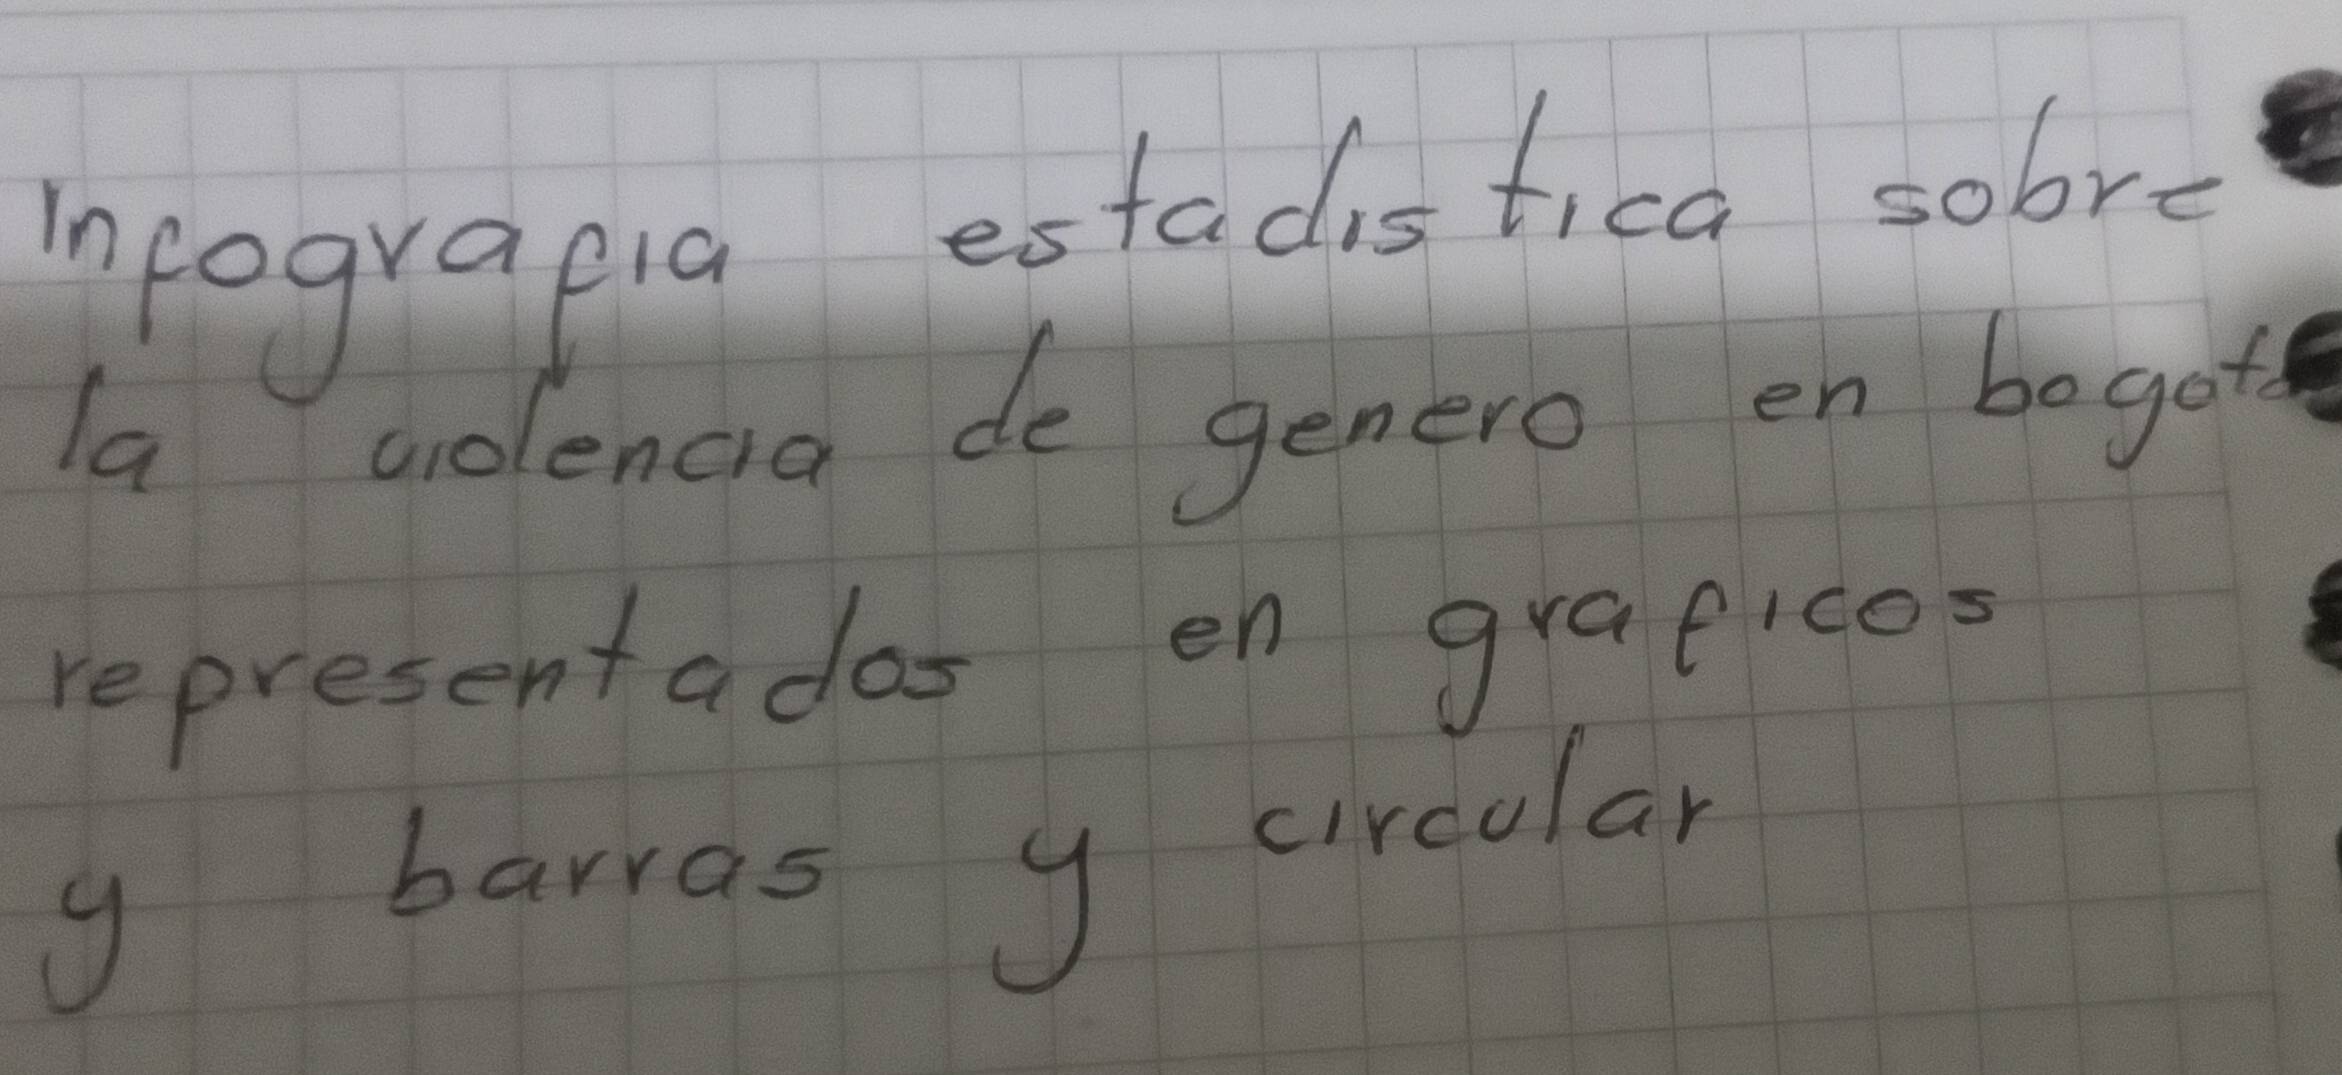 Infografia estadistica sobre
la violencia de genero en bogota
representados en graficos
y barras y circular